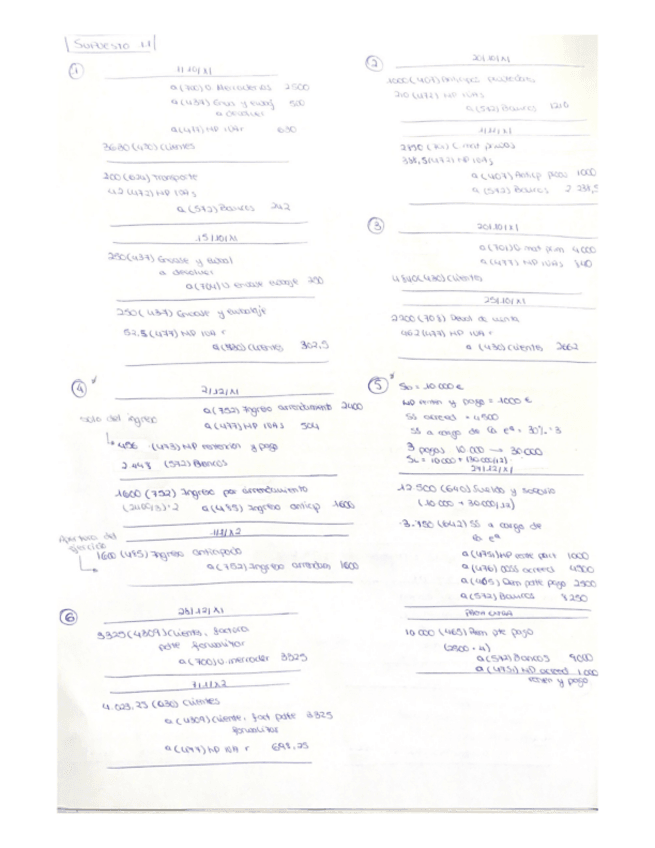 SUPUESTO 1.1
①
1/10/X1
a (700) D Mercaderías 2500
a (437) Envas y embalj 500
a devolver
a (477) HP IVAr 630
3630 (430) Clientes
200 (624) Transporte
42 (472) HP IVAs
a (572) Bancos 242
15/10/X1
250 (437) Envase y embal
a devolver
a (704) D envase embalaje 250
250 (437) Envase y embalaje
52,5 (477) HP IVA r
a (430) Clientes 302,5
②
20/10/X1
1000 (407) Anticipos proveedores
210 (472) HP IVAs
a (572) Bancos 1210
a (407) Anticip 1000
a (572) Bancos
③
20/10/X1
a (701) D mat prim 4000
a (477) HP IVAs 840
4840 (430) Clientes
25/10/X1
2200 (708) Devol de venta
462 (477) HP IVA r
a (430) Clientes 2662
④*
2/12/X1
a (752) Ingreso arrendamiento 2400
a (477) HP IVAs 504
solo del ingreso
456 (473) HP retención y pago
2448 (572) Bancos
1600 (752) Ingreso por arrendamiento
(2400/3)·2 a (485) Ingreso anticip 1600
1/1/X2
Apertura del ejercicio
1600 (485) Ingreso anticipado
a (752) Ingreso arrendam 1600
⑤*
SB = 10 000 €
HP reten y pago = 1000 €
SS acreed = 4500
SS a cargo de la eª = 30%·
3 pagas 10 000 → 30 000
12.500 (640) Sueldos y salario
(10 000 + 30 000/12)
3.750 (642) SS a cargo de
la eª
1000
a (476) OOSS acreed 4500
a (465) Rem pdte pago 2500
a (572) Bancos 8250
PAGA EXTRA
10 000 (465) Rem pte pago
(2500 · 4)
a (572) Bancos 9000
a (4751) HP acreed 1.000
reten y pago
⑥
23/12/X1
3325 (4309) Clientes, factura
pdte formalizar
a (700) D mercader 3325
7/1/X2
4.023,25 (430) Clientes
a (4309) Cliente, fact pdte 3325
formalizar
a (477) HP IVA r 698,25